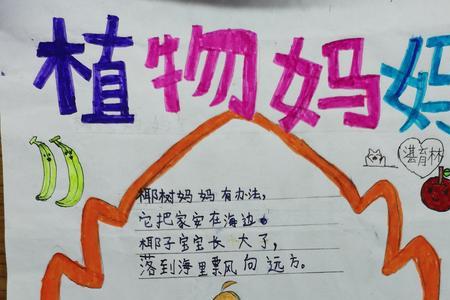 植物妈妈
湛育林
椰树妈妈有办法，
它把家安在海边。
椰子宝宝长大了，
落到海里票风向远方。